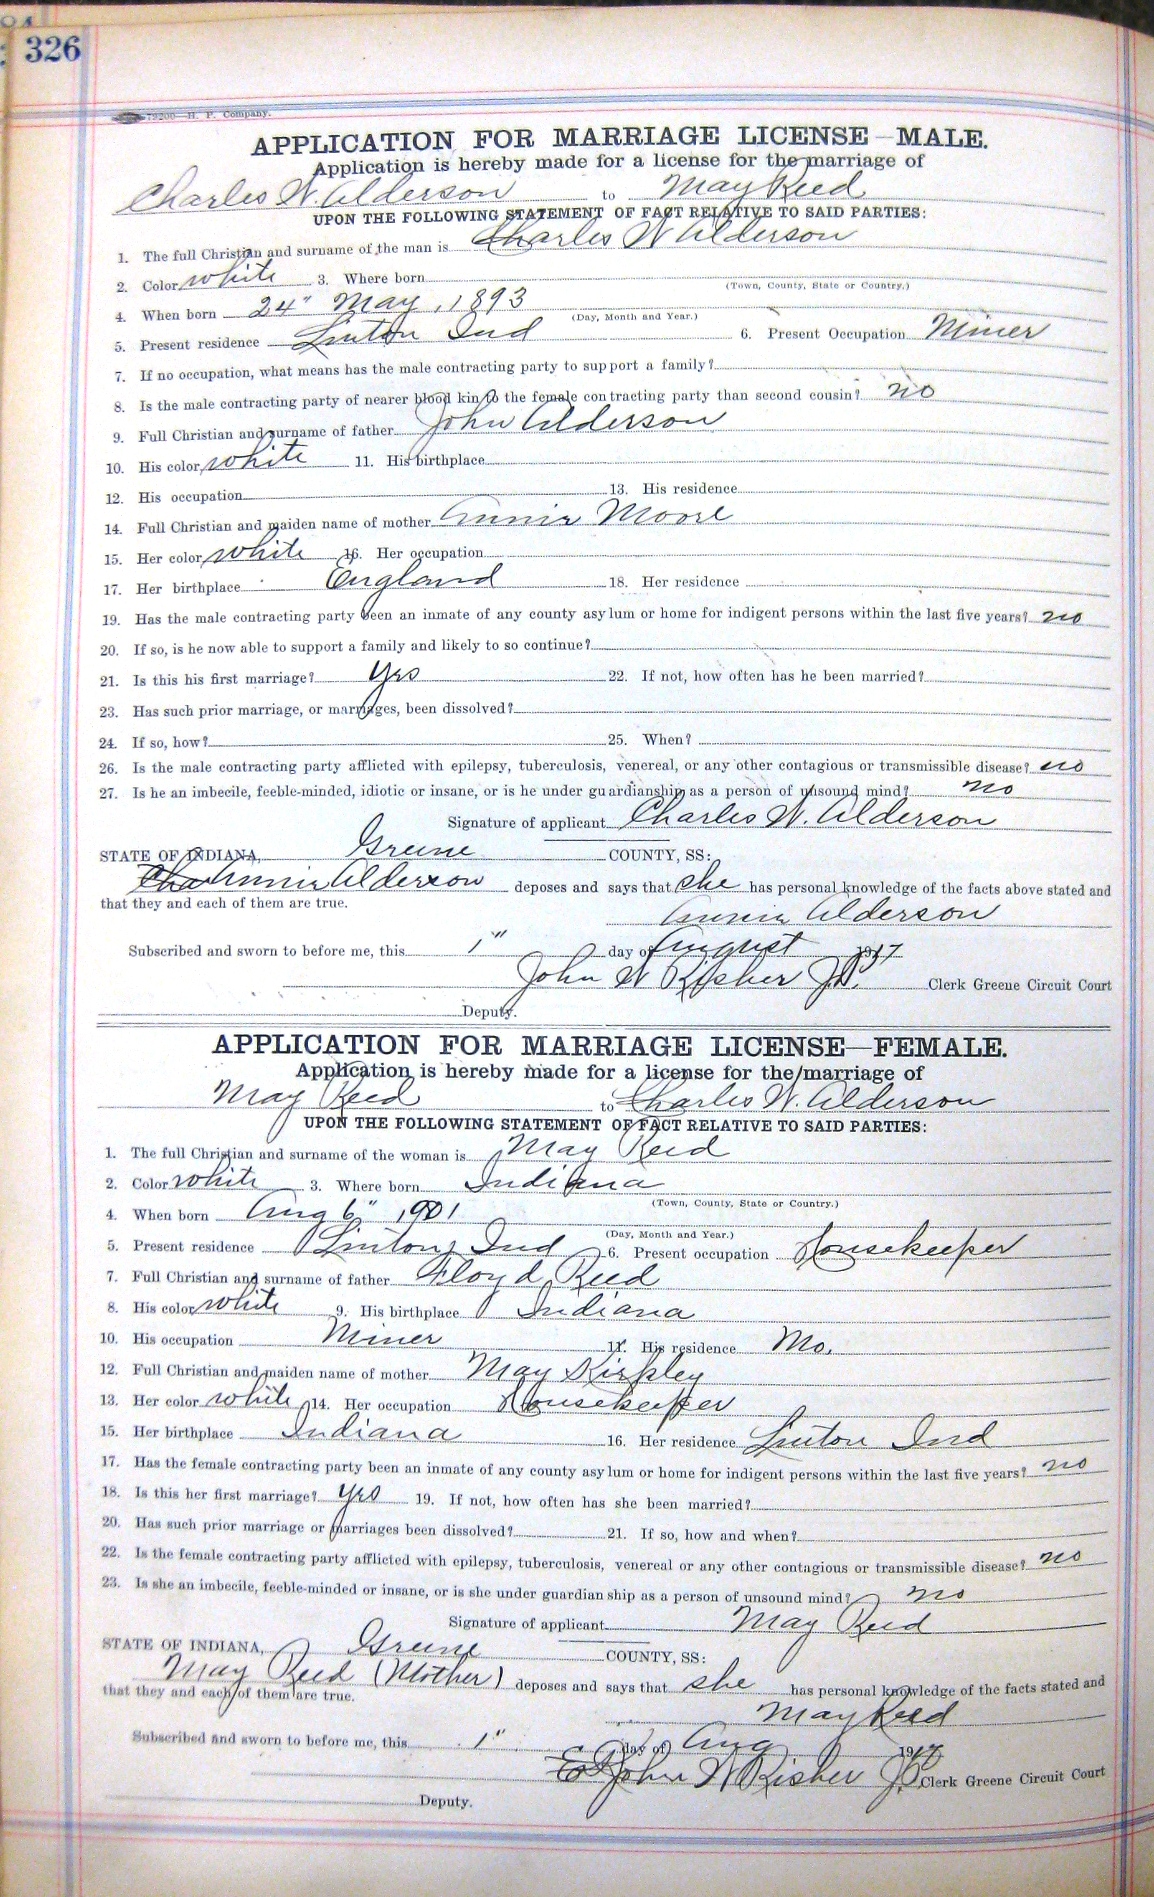 326
79200—H. P. Company.
APPLICATION FOR MARRIAGE LICENSE—MALE.
Application is hereby made for a license for the marriage of
Charles W. Alderson to May Reed
UPON THE FOLLOWING STATEMENT OF FACT RELATIVE TO SAID PARTIES:
1. The full Christian and surname of the man is Charles W Alderson
2. Color white 3. Where born
(Town, County, State or Country.)
4. When born 24" May, 1893
(Day, Month and Year.)
5. Present residence Linton Ind 6. Present Occupation Miner
7. If no occupation, what means has the male contracting party to support a family?
8. Is the male contracting party of nearer blood kin to the female contracting party than second cousin? no
9. Full Christian and surname of father John Alderson
10. His color white 11. His birthplace
12. His occupation 13. His residence
14. Full Christian and maiden name of mother Annie Moore
15. Her color white 16. Her occupation
17. Her birthplace England 18. Her residence
19. Has the male contracting party been an inmate of any county asylum or home for indigent persons within the last five years? no
20. If so, is he now able to support a family and likely to so continue?
21. Is this his first marriage? yes 22. If not, how often has he been married?
23. Has such prior marriage, or marriages, been dissolved?
24. If so, how? 25. When?
26. Is the male contracting party afflicted with epilepsy, tuberculosis, venereal, or any other contagious or transmissible disease? no
27. Is he an imbecile, feeble-minded, idiotic or insane, or is he under guardianship as a person of unsound mind? no
Signature of applicant Charles W. Alderson
STATE OF INDIANA, Greene COUNTY, SS:
Cha Annie Alderson deposes and says that she has personal knowledge of the facts above stated and
that they and each of them are true.
Annie Alderson
Subscribed and sworn to before me, this 1" day of August 1917
John W Risher J.P. Clerk Greene Circuit Court
Deputy.
APPLICATION FOR MARRIAGE LICENSE—FEMALE.
Application is hereby made for a license for the marriage of
May Reed to Charles W. Alderson
UPON THE FOLLOWING STATEMENT OF FACT RELATIVE TO SAID PARTIES:
1. The full Christian and surname of the woman is May Reed
2. Color white 3. Where born Indiana
(Town, County, State or Country.)
4. When born Aug 6" 1901
(Day, Month and Year.)
5. Present residence Linton, Ind 6. Present occupation Housekeeper
7. Full Christian and surname of father Floyd Reed
8. His color white 9. His birthplace Indiana
10. His occupation Miner 11. His residence Mo.
12. Full Christian and maiden name of mother May Kirkley
13. Her color white 14. Her occupation Housekeeper
15. Her birthplace Indiana 16. Her residence Linton Ind
17. Has the female contracting party been an inmate of any county asylum or home for indigent persons within the last five years? no
18. Is this her first marriage? yes 19. If not, how often has she been married?
20. Has such prior marriage or marriages been dissolved? 21. If so, how and when?
22. Is the female contracting party afflicted with epilepsy, tuberculosis, venereal or any other contagious or transmissible disease? no
23. Is she an imbecile, feeble-minded or insane, or is she under guardian ship as a person of unsound mind? no
Signature of applicant May Reed
STATE OF INDIANA, Greene COUNTY, SS:
May Reed (Mother) deposes and says that she has personal knowledge of the facts stated and
that they and each of them are true.
May Reed
Subscribed and sworn to before me, this 1" day of Aug 1917
John W Risher J.P. Clerk Greene Circuit Court
Deputy.